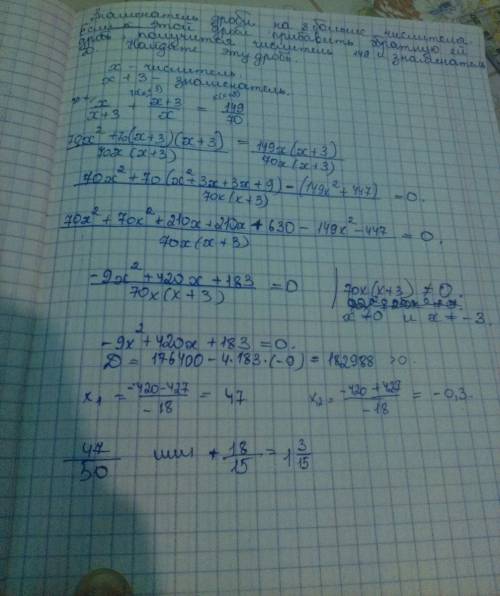 Знаменатель дроби на 3 больше числителя
если к этой дроби прибавить обратную ей
дробь получится числитель 149 и знаменатель
70. Найдите эту дробь.
x - числитель
x + 3 - знаменатель.
x/(x+3) + (x+3)/x = 149/70
(70x² + 70(x+3)(x+3))/(70x(x+3)) = 149x(x+3)/(70x(x+3))
(70x² + 70(x² + 3x + 3x + 9) - (149x² + 447))/(70x(x+3)) = 0.
(70x² + 70x² + 210x + 210x + 630 - 149x² - 447)/(70x(x+3)) = 0.
(-9x² + 420x + 183)/(70x(x+3)) = 0 | 70x(x+3) ≠ 0.
x ≠ 0 и x ≠ -3.
-9x² + 420x + 183 = 0.
D = 176400 - 4·183·(-9) = 182988 >0.
x₁ = (-420-427)/(-18) = 47 x₂ = (-420+429)/(-18) = -0,3.
47/50 или + 18/15 = 1 3/15